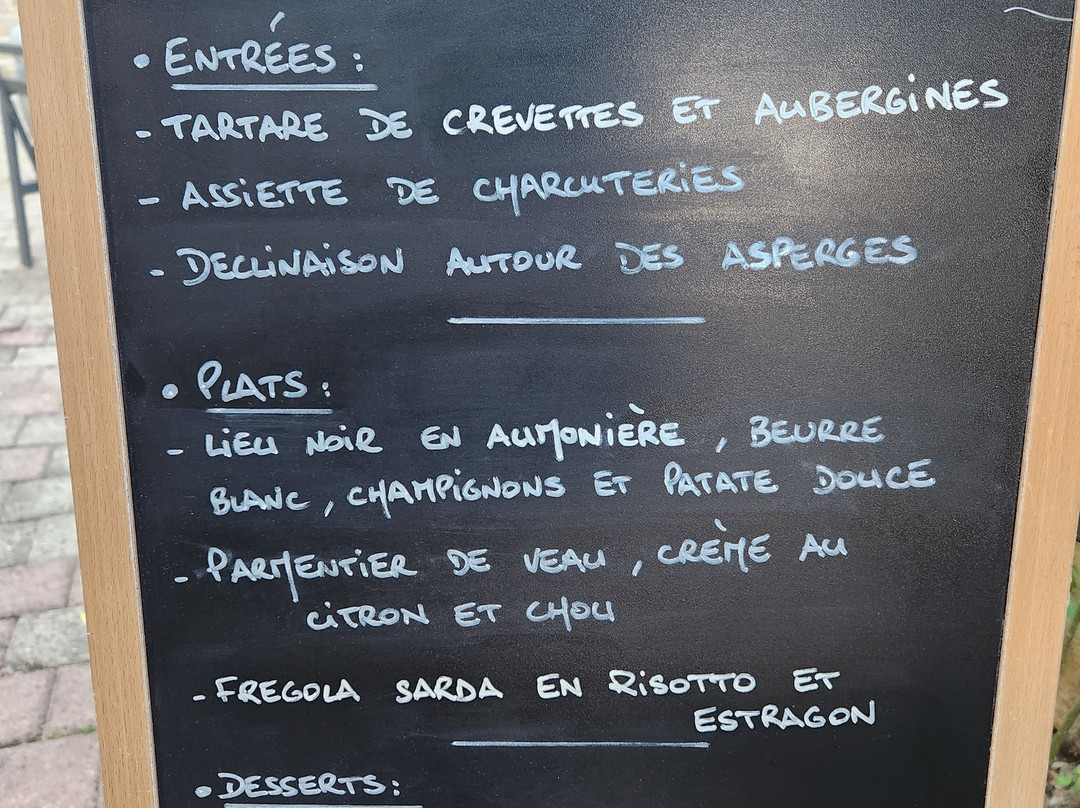 • ENTRÉES :
- TARTARE DE CREVETTES ET AUBERGINES
- ASSIETTE DE CHARCUTERIES
- DECLINAISON AUTOUR DES ASPERGES
• PLATS :
- LIEU NOIR EN AUMONIÈRE , BEURRE
BLANC , CHAMPIGNONS ET PATATE DOUCE
- PARMENTIER DE VEAU , CRÈME AU
CITRON ET CHOU
- FREGOLA SARDA EN RISOTTO ET
ESTRAGON
• DESSERTS :